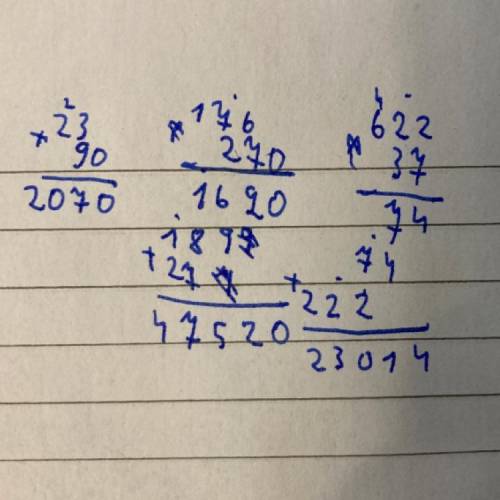 2
× 23
90
2070
176
× 270
1620
189
+ 27
47520
4
622
× 37
74
74
+ 222
23014